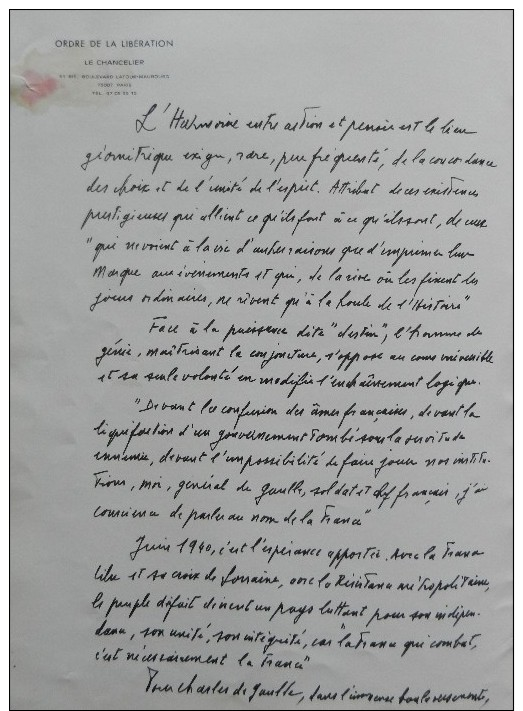 ORDRE DE LA LIBÉRATION
LE CHANCELIER
51 BIS, BOULEVARD LATOUR-MAUBOURG
75007 PARIS
L'Harmonie entre action et pensée est le lieu
géométrique exigu, rare, peu fréquenté, de la concordance
des choix et de l'unité de l'esprit. Attribut de ces existences
prestigieuses qui allient ce qu'ils font à ce qu'ils sont, de ceux
"qui ne voient à la vie d'autres raisons que d'imprimer leur
marque aux évènements et qui, de la rive où les fixent les
jours ordinaires, ne rêvent qu'à la houle de l'Histoire"
Face à la puissance dite "destin", l'homme de
génie, maîtrisant la conjoncture, s'oppose au cours irréversible
et sa seule volonté en modifie l'enchaînement logique.
"Devant la confusion des âmes françaises, devant la
liquéfaction d'un gouvernement tombé sous la servitude
ennemie, devant l'impossibilité de faire jouer nos institu-
tions, moi, général de Gaulle, soldat et chef français, j'ai
conscience de parler au nom de la France"
Juin 1940, c'est l'espérance apportée. Avec la France
libre et sa croix de Lorraine, avec la Résistance métropolitaine,
le peuple défait devient un pays luttant pour son indépen-
dance, son unité, son intégrité, car "la France qui combat,
c'est nécessairement la France"
Pour Charles de Gaulle, dans l'immense bouleversement,